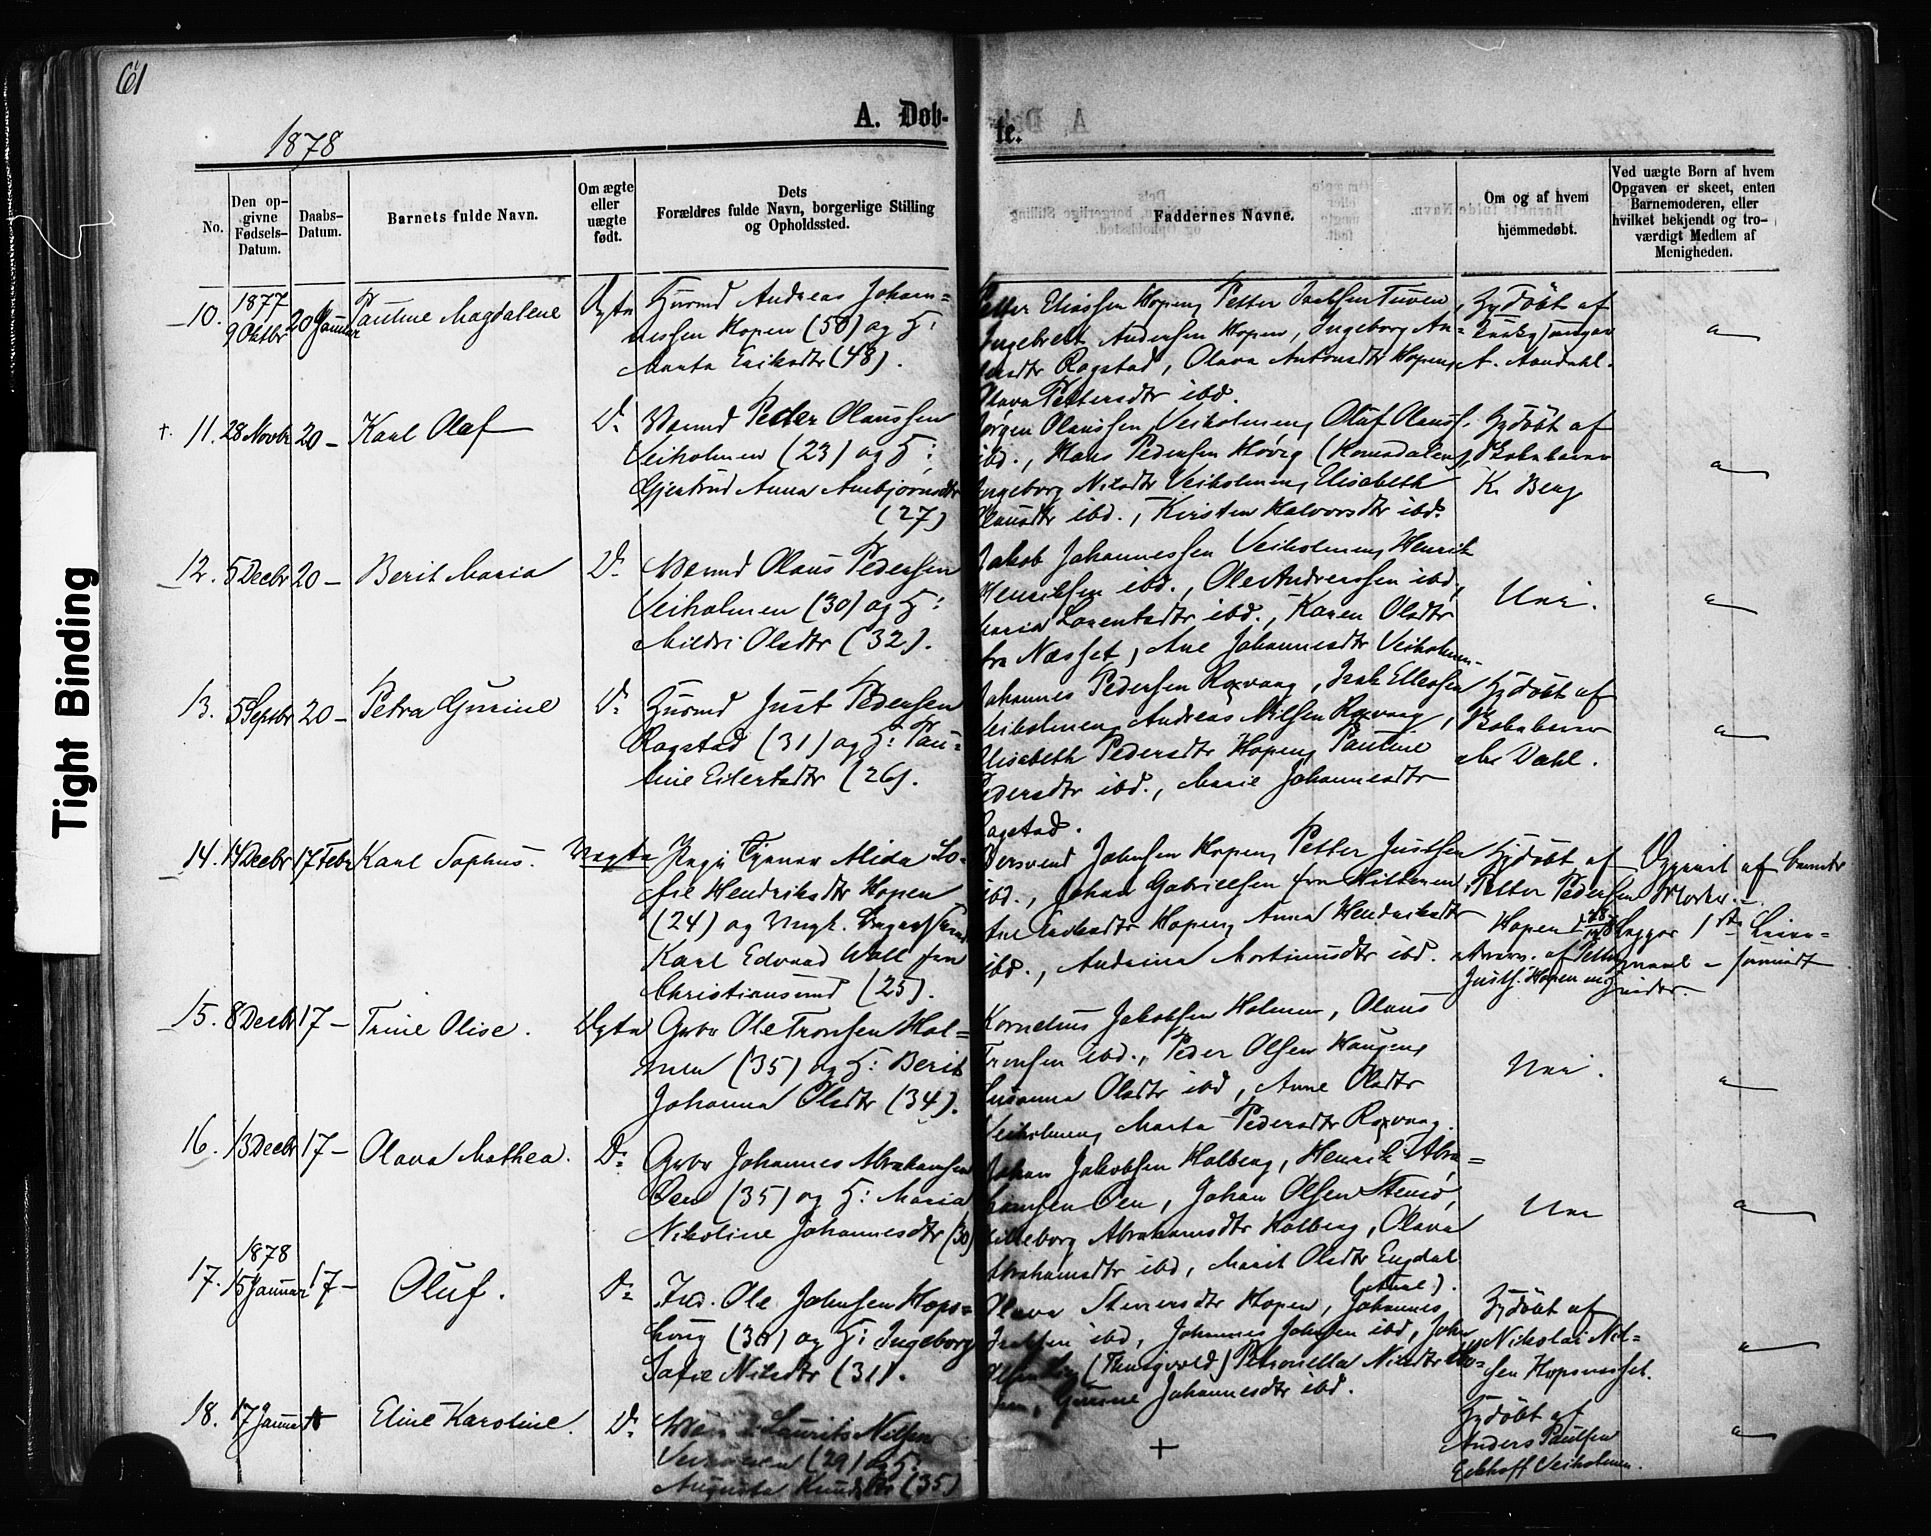 61
A. Døb-
te.
1878
No.
Den op-
givne
Fødsels-
Datum.
Daabs-
Datum.
Barnets fulde Navn.
Om ægte
eller
uægte
født.
Dets
Forældres fulde Navn, borgerlige Stilling
og Opholdssted.
Faddernes Navne.
Om og af hvem
hjemmedøbt.
Ved uægte Børn af hvem
Opgaven er skeet, enten
Barnemoderen, eller
hvilket bekjendt og tro-
værdigt Medlem af
Menigheden.
10. 1877
9 Oktbr 20 Januar Pauline Magdalene Ægte Husmd Andreas Johan=
nessen Hopen (50) og H:
Marta Eriksdtr (48).
Petter Eliassen Hopen, Petter Tuven,
Ingebrett Andersen Hopen, Ingeborg An=
dersdtr Rogstad, Olava Antonsdtr Hopen,
Olava Pettersdtr ibd.
Hjdøbt af
A. Aandahl.
11. 28 Novbr 20 — Karl Olaf Do Værmd Peder Olaussen
Veiholmen (23) og H:
Gjertrud Anna Arnbjørnsdtr
(27)
Jørgen Olaussen Veiholmen, Oluf Olauss.
ibd., Hans Pedersen Høvig (Romsdalen),
Ingeborg Nilsdtr Veiholmen, Elisabeth
Olausdtr ibd., Kirsten Halvorsdtr ibd.
Hjdøbt af
K. Berg
12. 5 Decbr 20 — Berit Maria Do Værmd Olaus Pedersen
Veiholmen (30) og H:
Mildri Olsdtr (32).
Jakob Johannessen Veiholmen, Henrik
Henriksen ibd., Ole Andreassen ibd.,
Maria Lorentsdtr ibd., Karen Olsdtr
fra Næsset, Ane Johannesdtr Veiholmen.
Nei.
13. 5 Septbr 20 — Petra Gurine Do Husmd Just Pedersen
Rogstad (31) og H: Pau=
line Eilertsdtr (26).
Johannes Pedersen Roxvaag, Isak Ellevsen
Veiholmen, Andreas Nilsen Roxvaag,
Elisabeth Pedersdtr Hopen, Pauline
Pedersdtr ibd., Marie Johannesdtr
Rogstad.
Hjdøbt af
Dahl.
14. 14 Decbr 17 Febr Karl Sophus. Uægte Pige Alida So=
fie Hendriksdtr Hopen
(24) og Ungk.
Karl Edvard Wall fra
Christiansund (25).
Johnsen Hopen, Petter Justsen
ibd., Johan Gabrielsen fra Hitteren,
Ane Hopen, Anna Hendriksdtr
ibd., Andrina Mortinusdtr ibd.
Hjdøbt af
Petter Pedersen
Hopen
af Petter
Justs. Hopen
Opgivet af Barnets
Moder.
Begges 1ste Leier=
maal
15. 8 Decbr 17 — Trine Olise. Ægte Gbr Ole Tronsen Hol=
men (35) og H: Berit
Johanna Olsdtr (34).
Kornelius Jakobsen Holmen, Olaus
Tronsen ibd., Peder Olsen Haugen,
Susanna Olsdtr ibd, Anne Olsdtr
Veiholmen, Marta Pedersdtr Roxvaag.
Nei.
16. 13 Decbr 17 — Olava Mathea. Do Gbr Johannes Abrahamsen
Øen (35) og H: Maria
Nikoline Johannesdtr (30)
Johan Jakobsen Holberg, Henrik Abra=
hamsen Øen, Johan Olsen Stensø,
Abrahamsdtr Holberg, Olava
Abrahamsdtr ibd, Marit Olsdtr Engdal
Nei
17. 1878
15 Januar 17 — Oluf. Do Ind. Ole Johnsen Hops=
(30) og H: Ingeborg
Sofie Nilsdtr (31).
Olava Hopen, Johannes
ibd, Johannes Johnsen ibd, John
Petronella Nilsdtr
Gurine Johannesdtr ibd.
Hjdøbt af
Nikolai Nil=
sen Hopsnesset.
18. 17 Januar Eline Karoline. Do Laurits Nilsen
(29) og H:
Augusta Knudsdtr (35)
+
Hjdøbt af
Anders Paulsen
Eckhoff Veiholmen.
Tight Binding